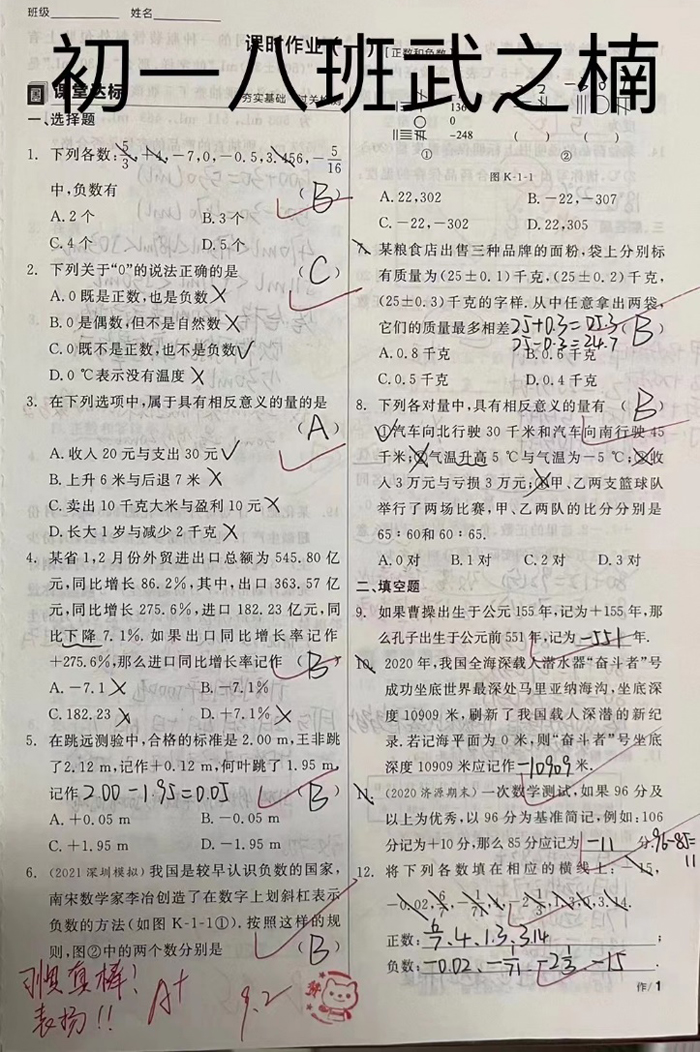 班级________ 姓名________
课时作业(一) [正数和负数]
初一八班武之楠
课堂达标
夯实基础 过关检测
一、选择题
1. 下列各数:5/3,+4,-7,0,-0.5,3.456,-5/16
中,负数有 (B)
A. 2个 B. 3个
C. 4个 D. 5个
2. 下列关于“0”的说法正确的是 (C)
A. 0既是正数,也是负数 X
B. 0是偶数,但不是自然数 X
C. 0既不是正数,也不是负数 √
D. 0 ℃表示没有温度 X
3. 在下列选项中,属于具有相反意义的量的是
(A)
A. 收入20元与支出30元 √
B. 上升6米与后退7米 X
C. 卖出10千克大米与盈利10元 X
D. 长大1岁与减少2千克 X
4. 某省1,2月份外贸进出口总额为545.80亿
元,同比增长86.2%,其中,出口363.57亿
元,同比增长275.6%,进口182.23亿元,同
比下降7.1%. 如果出口同比增长率记作
+275.6%,那么进口同比增长率记作 (B)
A. -7.1 X B. -7.1%
C. 182.23 X D. +7.1% X
5. 在跳远测验中,合格的标准是2.00 m,王非跳
了2.12 m,记作+0.12 m,何叶跳了1.95 m,
记作 2.00-1.95=0.05 (B)
A. +0.05 m B. -0.05 m
C. +1.95 m D. -1.95 m
6. (2021深圳模拟)我国是较早认识负数的国家,
南宋数学家李冶创造了在数字上划斜杠表示
负数的方法(如图K-1-1①). 按照这样的规
则,图②中的两个数分别是 (B)
136
0
-248 ( ) ( )
① ②
图K-1-1
A. 22,302 B. -22,-307
C. -22,-302 D. 22,305
7. 某粮食店出售三种品牌的面粉,袋上分别标
有质量为(25±0.1)千克,(25±0.2)千克,
(25±0.3)千克的字样. 从中任意拿出两袋,
它们的质量最多相差 25+0.3=25.3 (B)
25-0.3=24.7
A. 0.8千克 B. 0.6千克
C. 0.5千克 D. 0.4千克
8. 下列各对量中,具有相反意义的量有 (B)
①汽车向北行驶30千米和汽车向南行驶45
千米;②气温升高5 ℃与气温为-5 ℃;③收
入3万元与亏损3万元;④甲、乙两支篮球队
举行了两场比赛,甲、乙两队的比分分别是
65∶60和60∶65.
A. 0对 B. 1对 C. 2对 D. 3对
二、填空题
9. 如果曹操出生于公元155年,记为+155年,那
么孔子出生于公元前551年,记为 -551 年.
10. 2020年,我国全海深载人潜水器“奋斗者”号
成功坐底世界最深处马里亚纳海沟,坐底深
度10909米,刷新了我国载人深潜的新纪
录. 若记海平面为0米,则“奋斗者”号坐底
深度10909米应记作 -10909 米.
11. (2020济源期末)一次数学测试,如果96分及
以上为优秀,以96分为基准简记,例如:106
分记为+10分,那么85分应记为 -11 分. 96-85=
11
12. 将下列各数填在相应的横线上:-15,
-0.02,6/7,-1/71,4,-2 1/3,1.3,0,3.14.
正数: 6/7、4、1.3、3.14 ;
负数: -0.02、-1/71、-2 1/3、-15 .
真棒!
表扬!!
A+
9.2
作/1